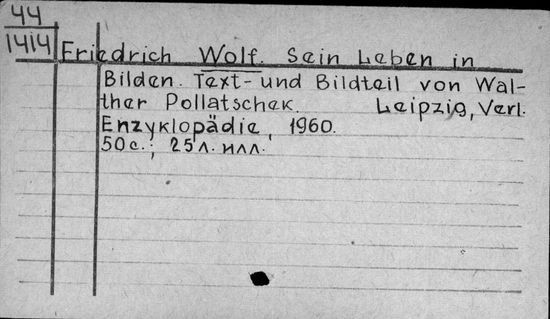 44
1414
Friedrich Wolf. Sein Leben in
Bilden. Text- und Bildteil von Wal-
ther Pollatschek. Leipzig, Verl.
Enzyklopädie, 1960.
50с.; 25л. илл.